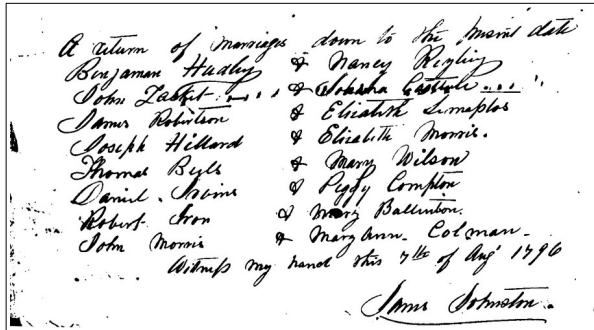 A return of marriages down to the present date
Benjaman Hadley & Nancy Rigley
John Lasket .... &
James Robertson & Elizabeth
Joseph Hillard & Elizabeth Morris.
Thomas Byls & Mary Wilson
Daniel Irvine & Peggy Compton
Robert Iron & Mary Ballenton.
John Morris & Mary Ann. Colman.
Witness my hand this 7th of Augt 1796
James Johnston.